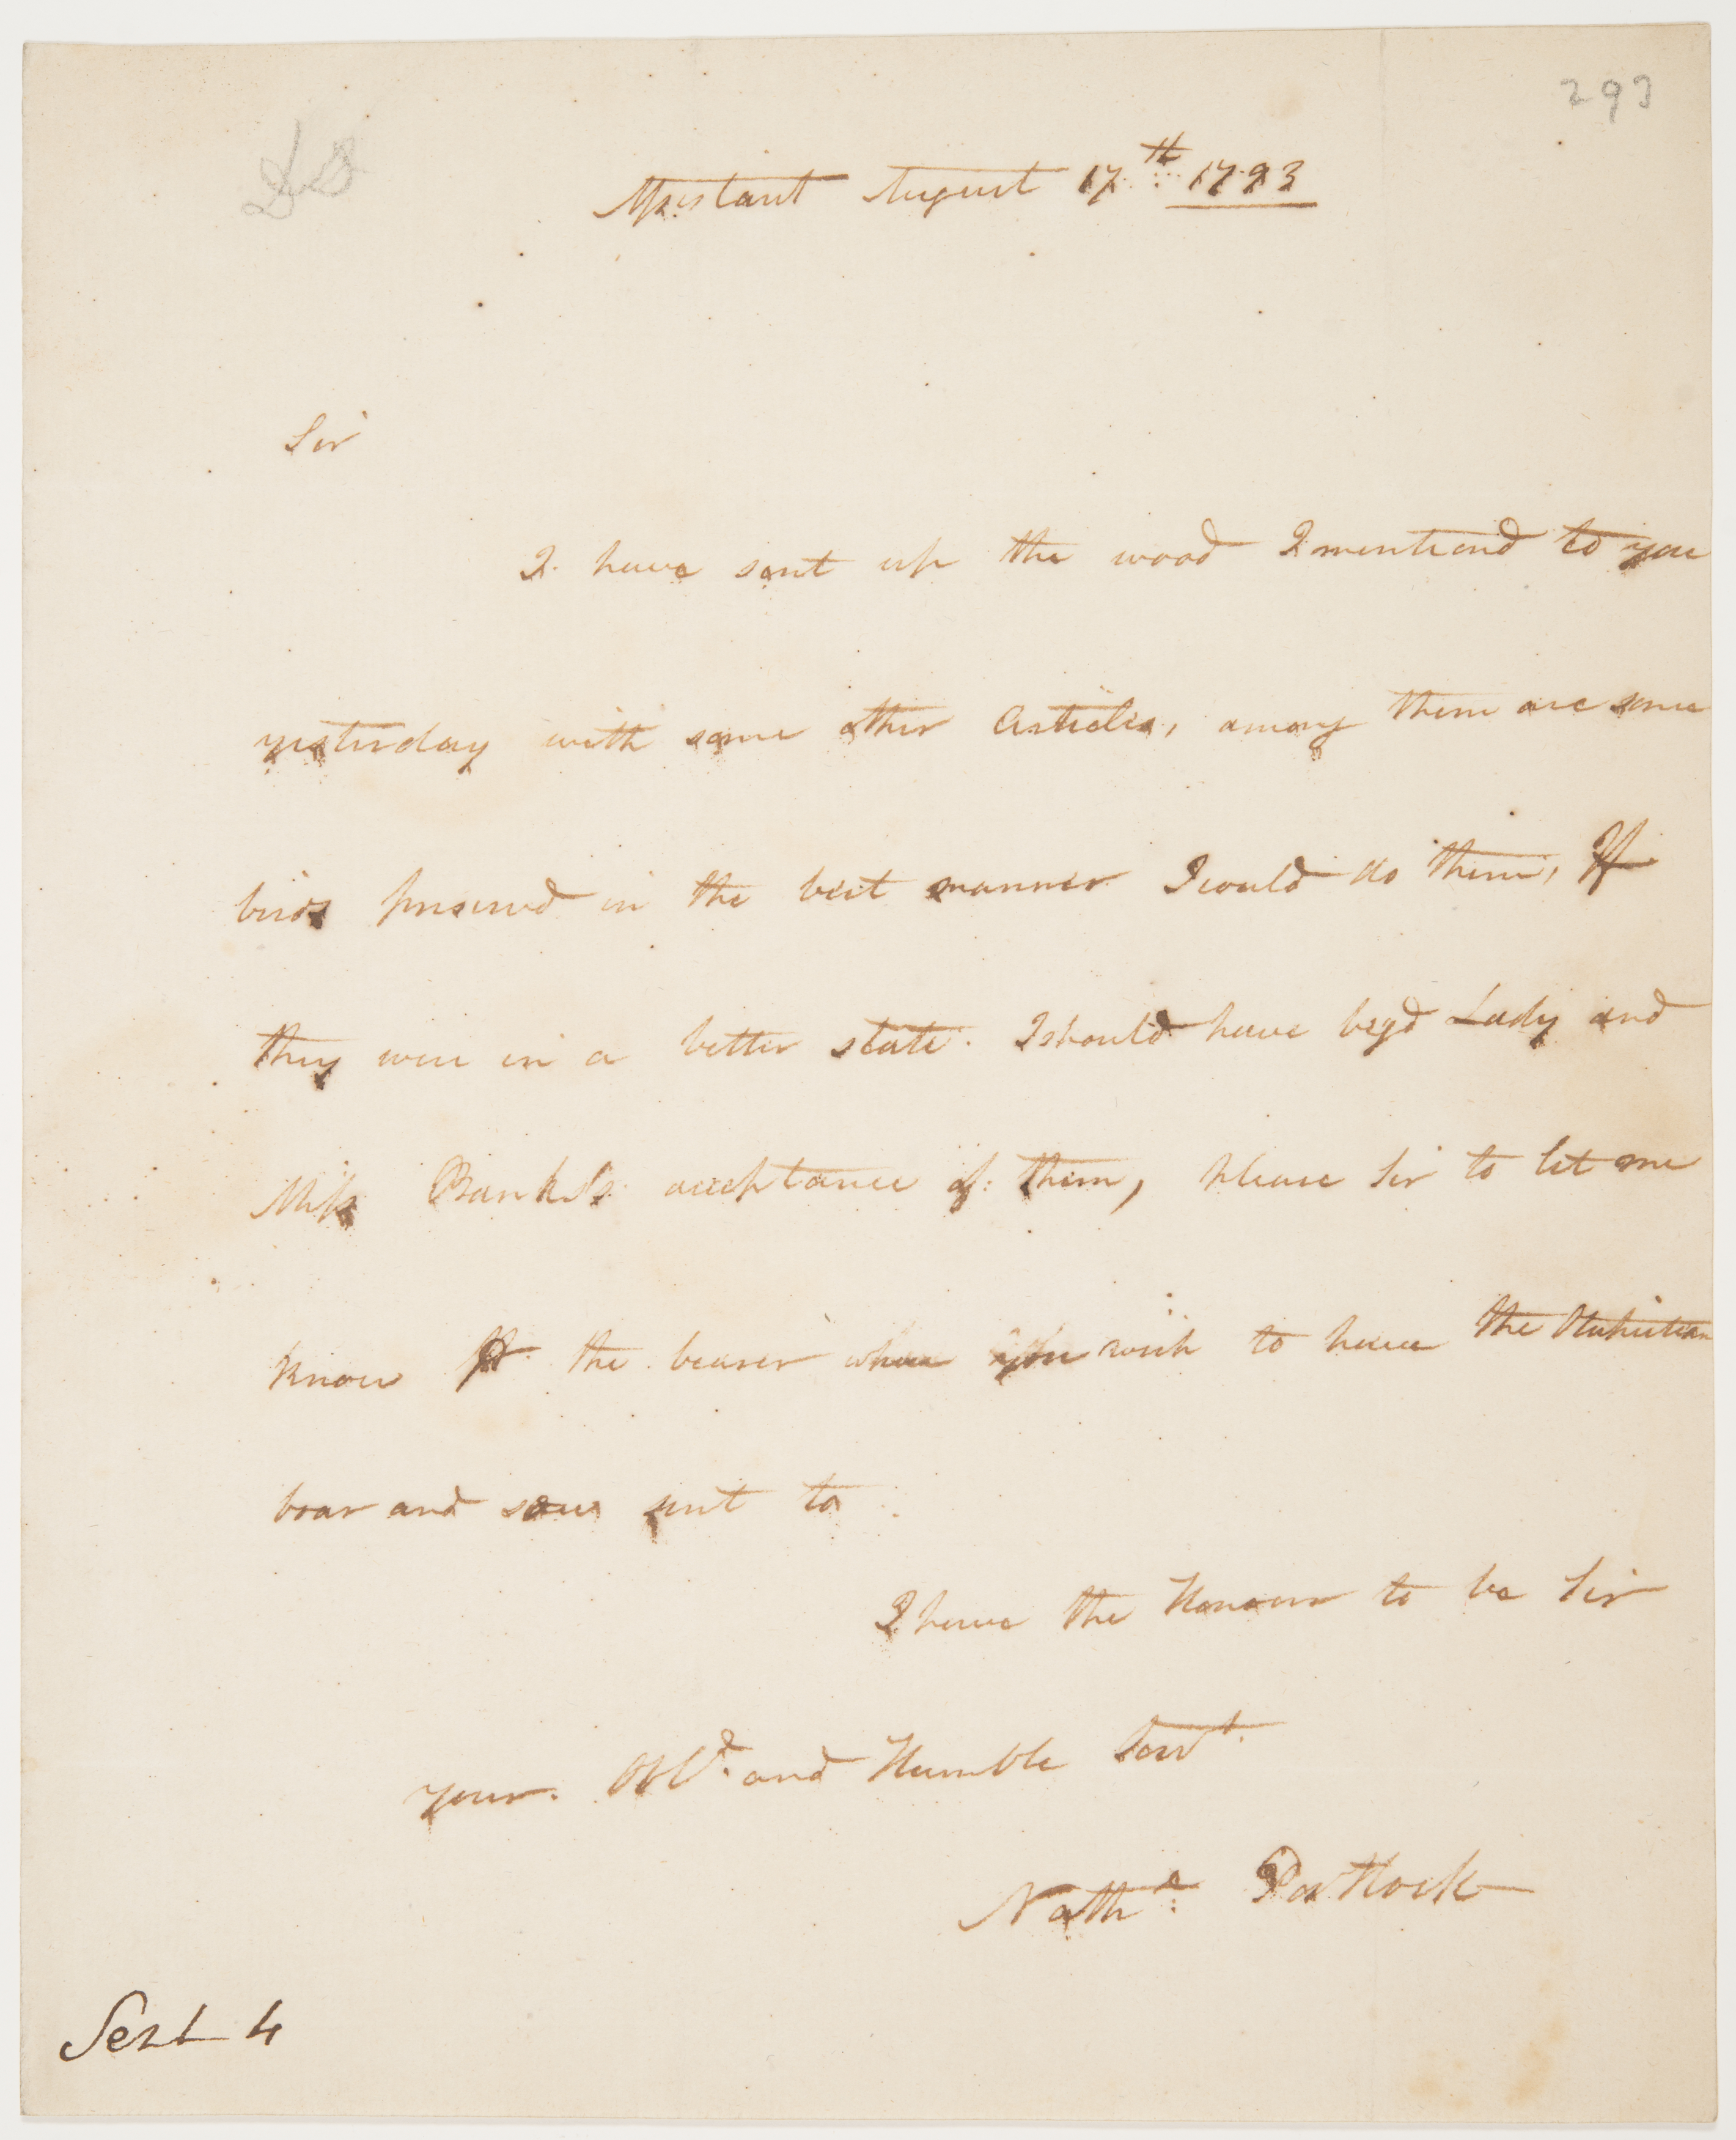 293
DS
Assistant August 17th 1793
Sir
I have sent up the wood I mentiond to you
yesterday with some other Articles, among them are some
birds preserved in the best manner I could do them, If
they were in a better state. I should have begd Lady and
Miss Banks's acceptance of them, please Sir to let me
know pr the bearer where you wish to have the Otahietean
boar and sow sent to
I have the Honour to be Sir
your Obld. and Humble Servt.
Nathl. Portlock
Sent 4